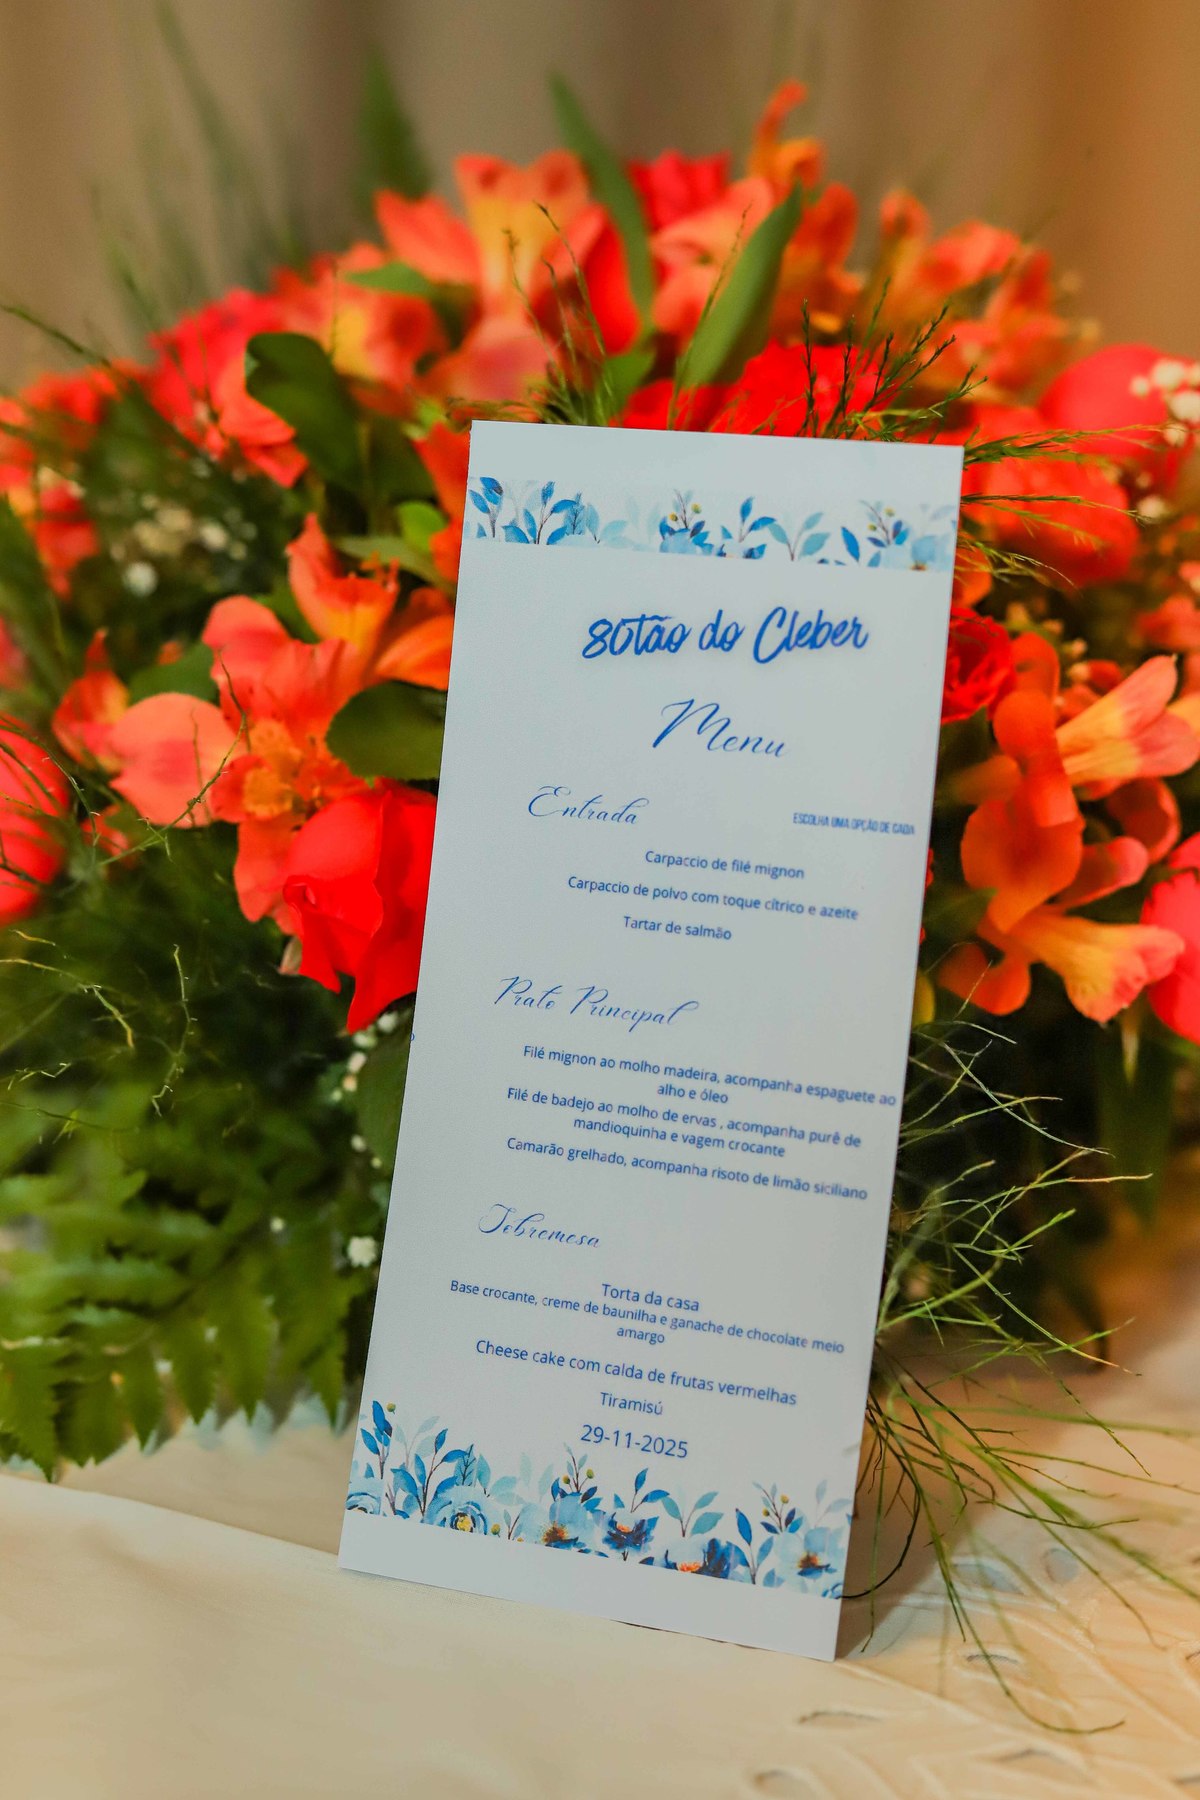 80tão do Cleber
Menu
Entrada
ESCOLHA UMA OPÇÃO DE CADA
Carpaccio de filé mignon
Carpaccio de polvo com toque cítrico e azeite
Tartar de salmão
Prato Principal
Filé mignon ao molho madeira, acompanha espaguete ao
alho e óleo
Filé de badejo ao molho de ervas , acompanha purê de
mandioquinha e vagem crocante
Camarão grelhado, acompanha risoto de limão siciliano
Sobremesa
Torta da casa
Base crocante, creme de baunilha e ganache de chocolate meio
amargo
Cheese cake com calda de frutas vermelhas
Tiramisú
29-11-2025